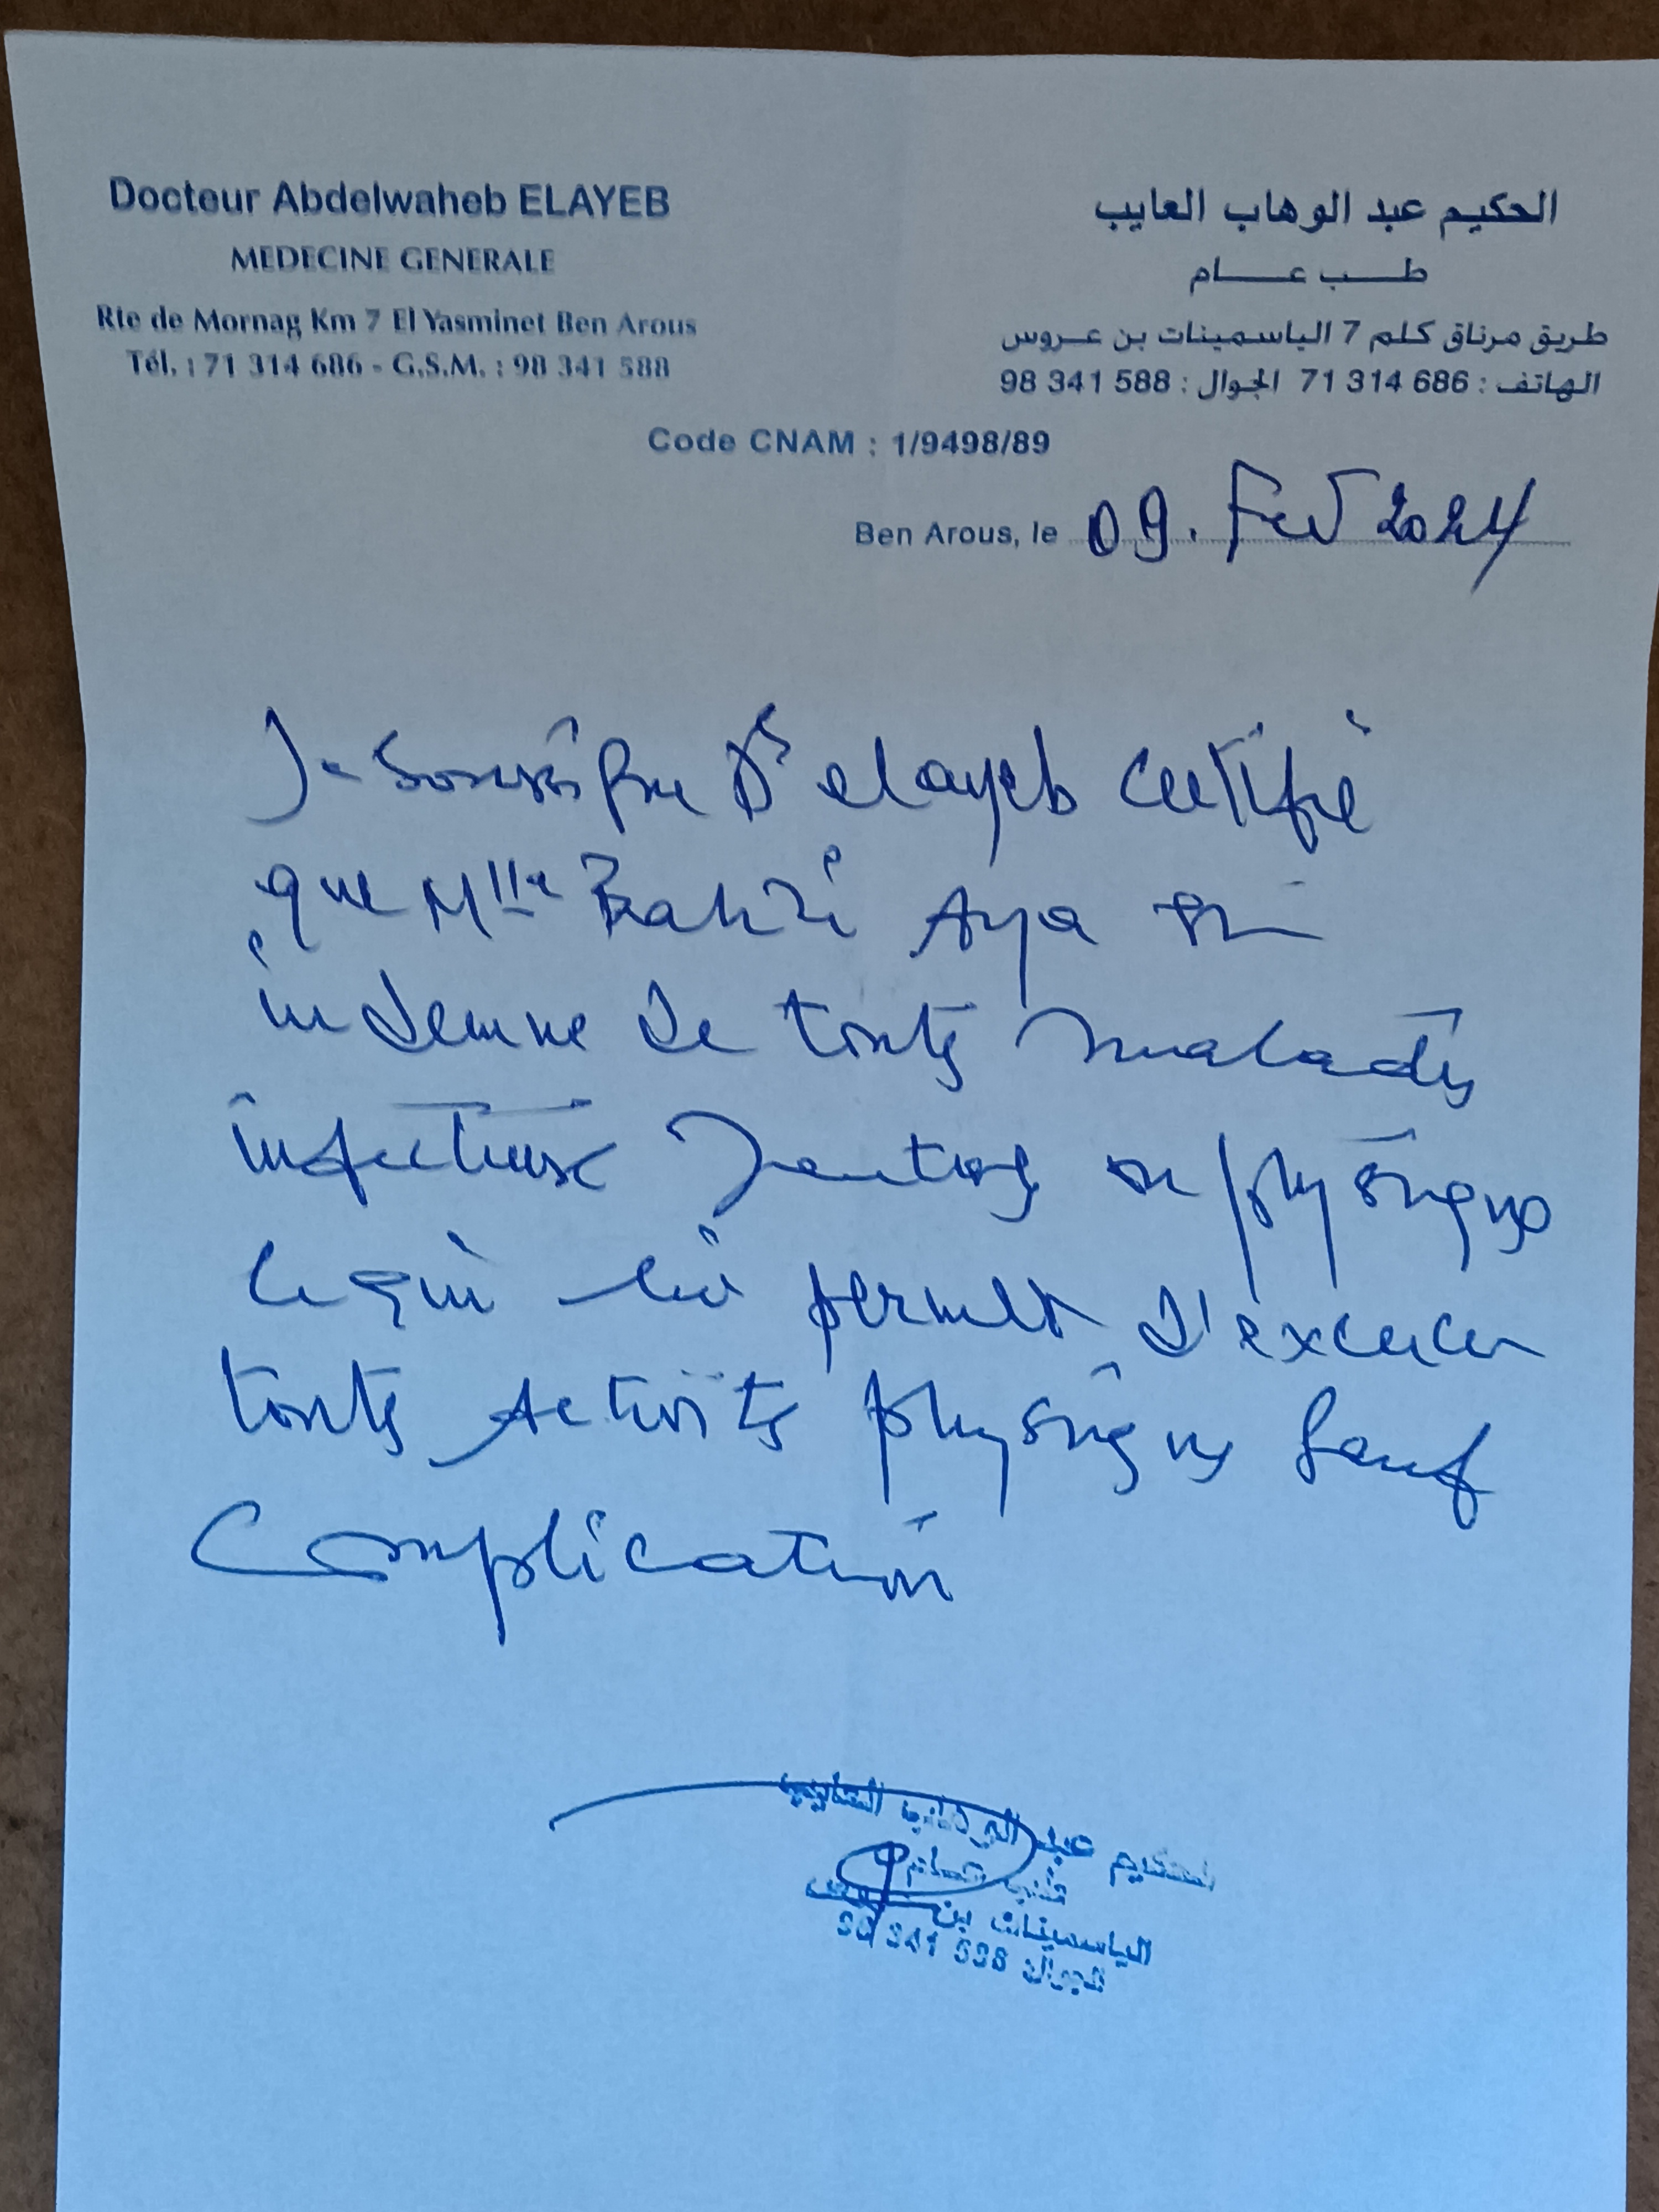 Docteur Abdelwaheb ELAYEB
MEDECINE GENERALE
Rte de Mornag Km 7 El Yasminet Ben Arous
Tél. : 71 314 686 - G.S.M. : 98 341 588
الحكيم عبد الوهاب العايب
طب عام
طريق مرناق كلم 7 الياسمينات بن عروس
الهاتف : 686 314 71 الجوال : 588 341 98
Code CNAM : 1/9498/89
Ben Arous, le 09. Fev 2024
Je soussigné Dr elayeb certifie
que Mlle Bahri Aya est
indemne de toutes maladies
infectieuse mentales ou physique
ce qui lui permet d'exercer
toutes activités physiques sauf
complication
الحكيم عبد الوهاب العايب
طب عام
الياسمينات بن عروس
الجوال 588 341 98